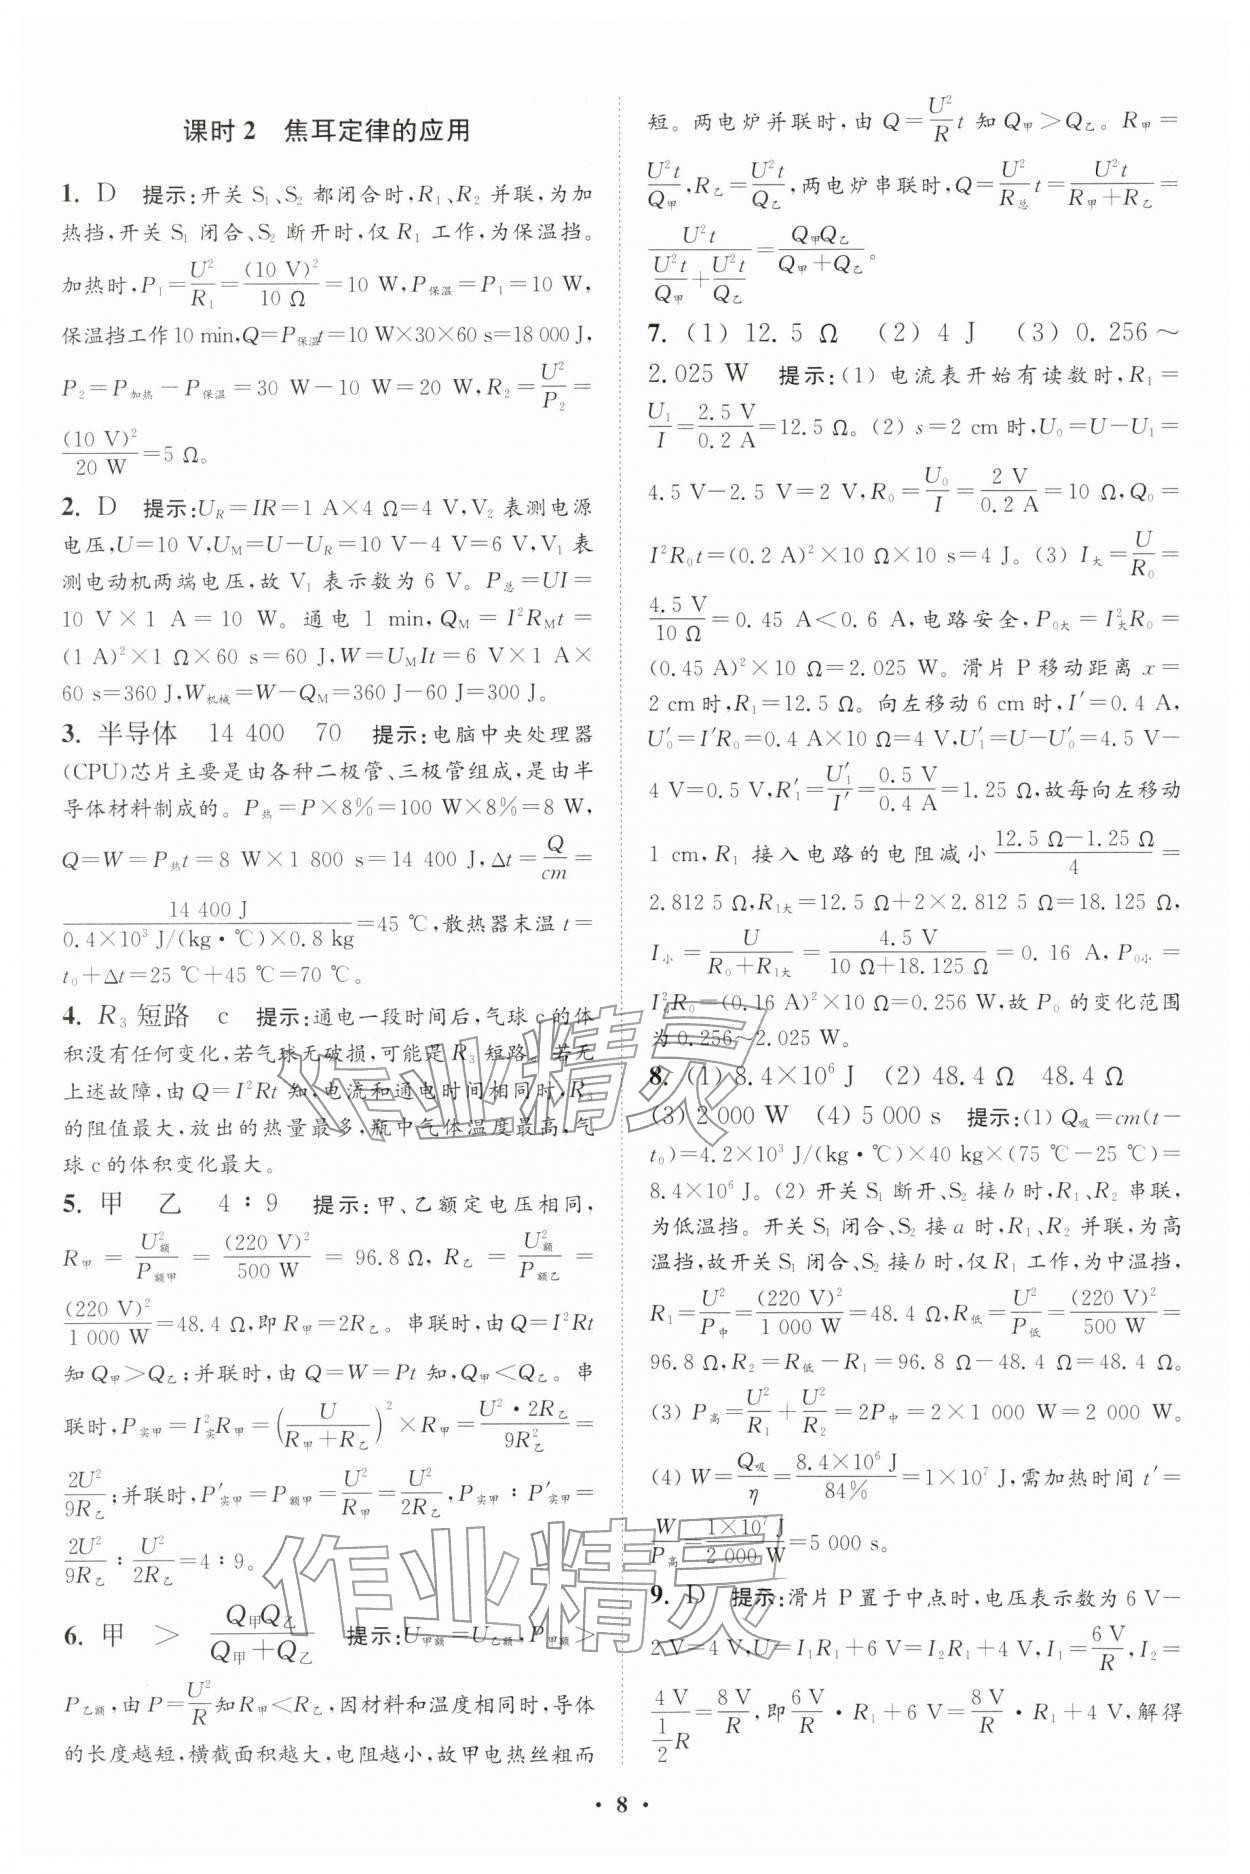 课时2 焦耳定律的应用
1. D 提示:开关 S₁、S₂ 都闭合时,R₁、R₂ 并联,为加
热挡,开关 S₁ 闭合、S₂ 断开时,仅 R₁ 工作,为保温挡。
加热时,P₁=U²/R₁=(10 V)²/10 Ω=10 W,P保温=P₁=10 W,
保温挡工作10 min,Q=P保温t=10 W×30×60 s=18 000 J,
P₂=P加热-P保温=30 W-10 W=20 W,R₂=U²/P₂=
(10 V)²/20 W=5 Ω。
2. D 提示:U_R=IR=1 A×4 Ω=4 V,V₂ 表测电源
电压,U=10 V,U_M=U-U_R=10 V-4 V=6 V,V₁ 表
测电动机两端电压,故 V₁ 表示数为 6 V。P总=UI=
10 V×1 A=10 W。通电 1 min,Q_M=I²R_Mt=
(1 A)²×1 Ω×60 s=60 J,W=U_MIt=6 V×1 A×
60 s=360 J,W机械=W-Q_M=360 J-60 J=300 J。
3. 半导体 14 400 70 提示:电脑中央处理器
(CPU)芯片主要是由各种二极管、三极管组成,是由半
导体材料制成的。P热=P×8%=100 W×8%=8 W,
Q=W=P热t=8 W×1 800 s=14 400 J,Δt=Q/cm=
14 400 J/(0.4×10³ J/(kg·℃)×0.8 kg)=45 ℃,散热器末温 t=
t₀+Δt=25 ℃+45 ℃=70 ℃。
4. R₃ 短路 c 提示:通电一段时间后,气球 c 的体
积没有任何变化,若气球无破损,可能是 R₃ 短路。若无
上述故障,由 Q=I²Rt 知,电流和通电时间相同时,R₃
的阻值最大,放出的热量最多,瓶中气体温度最高,气
球 c 的体积变化最大。
5. 甲 乙 4∶9 提示:甲、乙额定电压相同,
R甲=U额²/P额甲=(220 V)²/500 W=96.8 Ω,R乙=U额²/P额乙=
(220 V)²/1 000 W=48.4 Ω,即 R甲=2R乙。串联时,由 Q=I²Rt
知 Q甲>Q乙;并联时,由 Q=W=Pt 知,Q甲<Q乙。串
联时,P实甲=I实²R甲=(U/(R甲+R乙))²×R甲=U²·2R乙/9R乙²=
2U²/9R乙;并联时,P′实甲=P额甲=U²/R甲=U²/2R乙,P实甲∶P′实甲=
2U²/9R乙∶U²/2R乙=4∶9。
6. 甲 > Q甲Q乙/(Q甲+Q乙) 提示:U甲额=U乙额,P甲额>
P乙额,由 P=U²/R知 R甲<R乙,因材料和温度相同时,导体
的长度越短,横截面积越大,电阻越小,故甲电热丝粗而
短。两电炉并联时,由 Q=U²/R t 知 Q甲>Q乙。R甲=
U²t/Q甲,R乙=U²t/Q乙,两电炉串联时,Q=U²/R总 t=U²t/(R甲+R乙)=
U²t/(U²t/Q甲+U²t/Q乙)=Q甲Q乙/(Q甲+Q乙)。
7. (1) 12.5 Ω (2) 4 J (3) 0.256~
2.025 W 提示:(1) 电流表开始有读数时,R₁=
U₁/I=2.5 V/0.2 A=12.5 Ω。(2) s=2 cm 时,U₀=U-U₁=
4.5 V-2.5 V=2 V,R₀=U₀/I=2 V/0.2 A=10 Ω,Q₀=
I²R₀t=(0.2 A)²×10 Ω×10 s=4 J。(3) I大=U/R₀=
4.5 V/10 Ω=0.45 A<0.6 A,电路安全,P₀大=I大²R₀=
(0.45 A)²×10 Ω=2.025 W。滑片 P 移动距离 x=
2 cm 时,R₁=12.5 Ω。向左移动 6 cm 时,I′=0.4 A,
U₀′=I′R₀=0.4 A×10 Ω=4 V,U₁′=U-U₀′=4.5 V-
4 V=0.5 V,R₁′=U₁′/I′=0.5 V/0.4 A=1.25 Ω,故每向左移动
1 cm,R₁ 接入电路的电阻减小(12.5 Ω-1.25 Ω)/4=
2.812 5 Ω,R₁大=12.5 Ω+2×2.812 5 Ω=18.125 Ω,
I小=U/(R₀+R₁大)=4.5 V/(10 Ω+18.125 Ω)=0.16 A,P₀小=
I小²R₀=(0.16 A)²×10 Ω=0.256 W,故 P₀ 的变化范围
为0.256~2.025 W。
8. (1) 8.4×10⁶ J (2) 48.4 Ω 48.4 Ω
(3) 2 000 W (4) 5 000 s 提示:(1) Q吸=cm(t-
t₀)=4.2×10³ J/(kg·℃)×40 kg×(75 ℃-25 ℃)=
8.4×10⁶ J。(2) 开关 S₁ 断开、S₂ 接 b 时,R₁、R₂ 串联,
为低温挡。开关 S₁ 闭合、S₂ 接 a 时,R₁、R₂ 并联,为高
温挡,故开关 S₁ 闭合、S₂ 接 b 时,仅 R₁ 工作,为中温挡,
R₁=U²/P中=(220 V)²/1 000 W=48.4 Ω,R低=U²/P低=(220 V)²/500 W=
96.8 Ω,R₂=R低-R₁=96.8 Ω-48.4 Ω=48.4 Ω。
(3) P高=U²/R₁+U²/R₂=2P中=2×1 000 W=2 000 W。
(4) W=Q吸/η=8.4×10⁶ J/84%=1×10⁷ J,需加热时间 t′=
W/P高=1×10⁷ J/2 000 W=5 000 s。
9. D 提示:滑片 P 置于中点时,电压表示数为 6 V-
2 V=4 V,U=I₁R₁+6 V=I₂R₁+4 V,I₁=6 V/R,I₂=
4 V/(½R)=8 V/R,即6 V/R·R₁+6 V=8 V/R·R₁+4 V,解得
· 8 ·
作业精灵
作业精灵